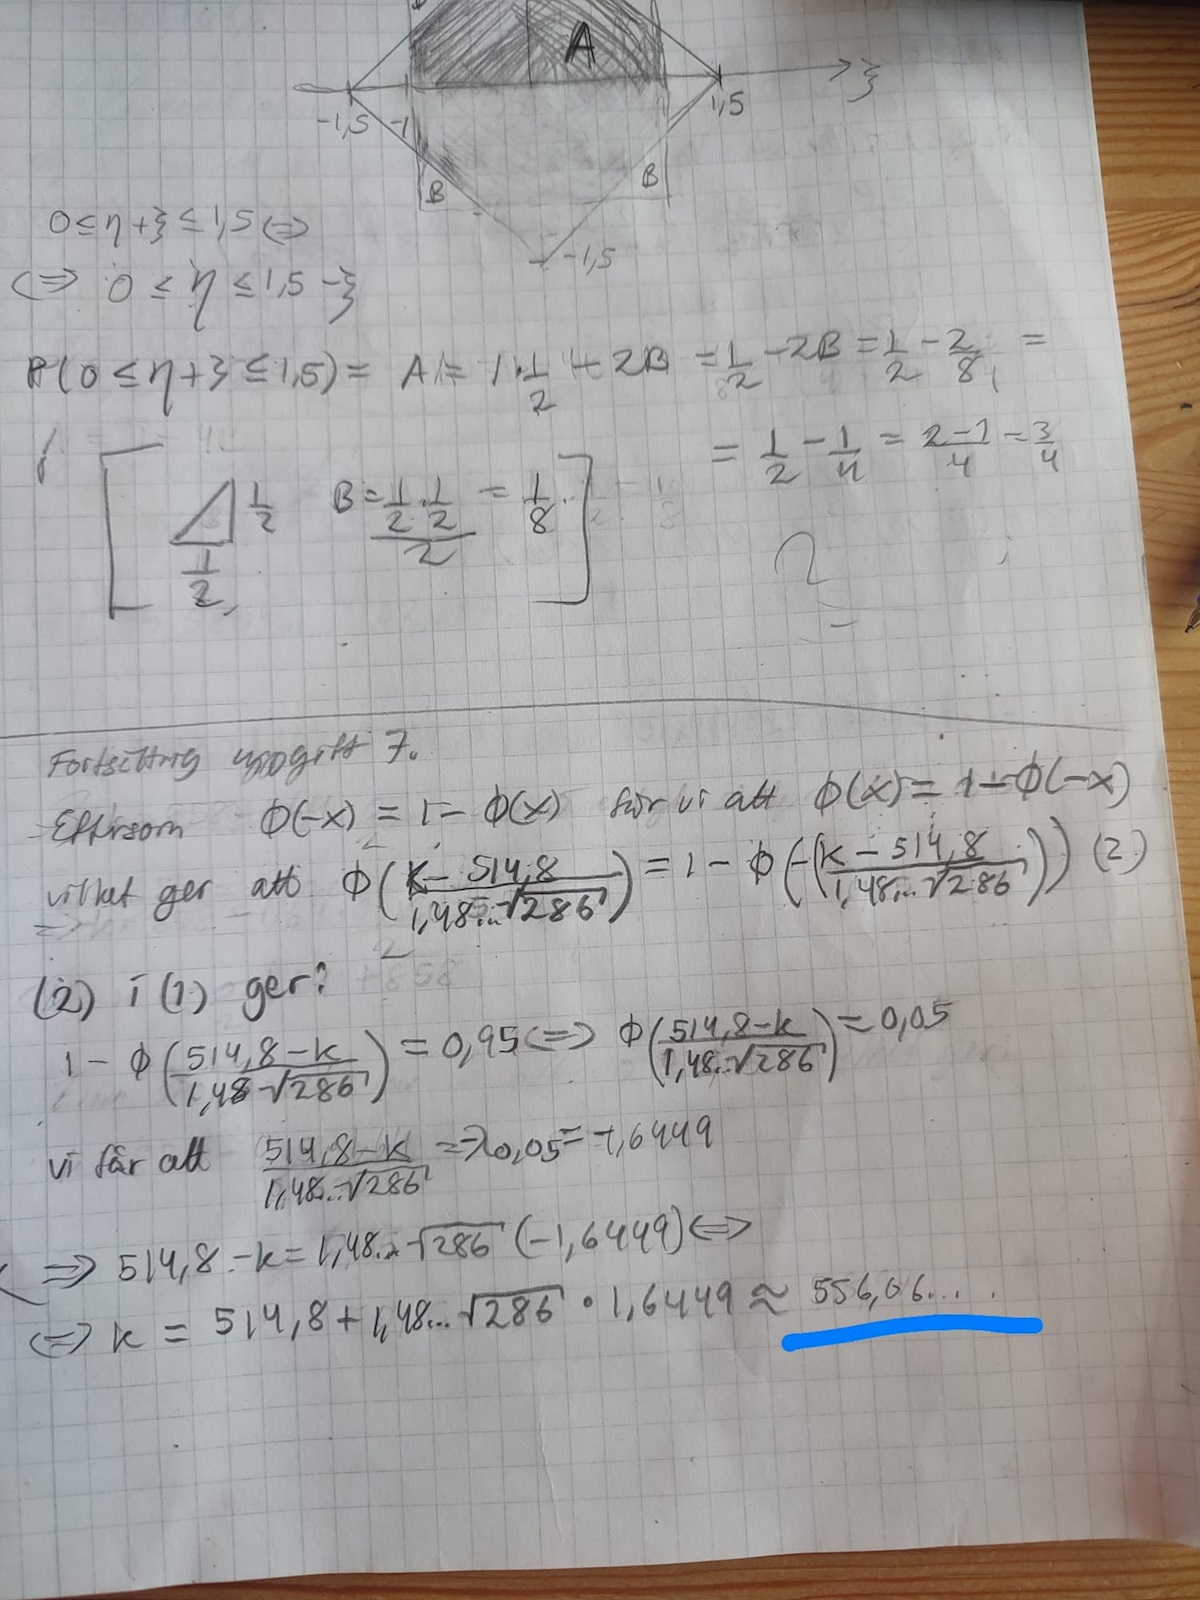 A
ξ
-1,5 -1 1,5
B B
-1,5
0 ≤ η+ξ ≤ 1,5 ⇔
⇔ 0 ≤ η ≤ 1,5 - ξ
P(0 ≤ η+ξ ≤ 1,5) = A = 1·1/2 + 2B = 1/2 - 2B = 1/2 - 2/8 =
= 1/2 - 1/4 = (2-1)/4 = 3/4
[ 1/2 1/2, B = (1/2 · 1/2)/2 = 1/8 ]
Fortsättning uppgift 7.
Eftersom Φ(-x) = 1 - Φ(x) får vi att Φ(x) = 1 - Φ(-x)
vilket ger att Φ((k - 514,8)/(1,48...√286)) = 1 - Φ(-((k - 514,8)/(1,48...√286))) (2)
(2) i (1) ger:
1 - Φ((514,8 - k)/(1,48 √286)) = 0,95 ⇔ Φ((514,8 - k)/(1,48..√286)) = 0,05
vi får att (514,8 - k)/(1,48...√286) = -λ0,05 = -1,6449
⇒ 514,8 - k = 1,48..√286 (-1,6449) ⇔
⇔ k = 514,8 + 1,48...√286 · 1,6449 ≈ 556,06....